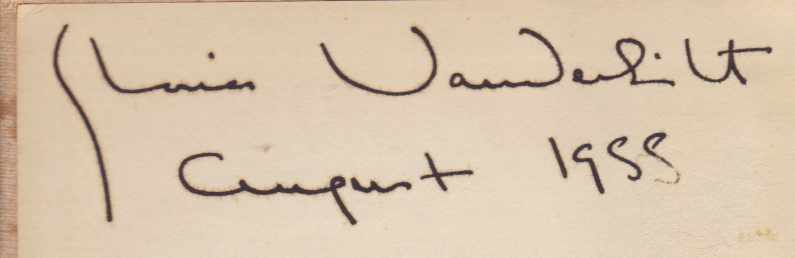 Gloria Vanderbilt
August 1955